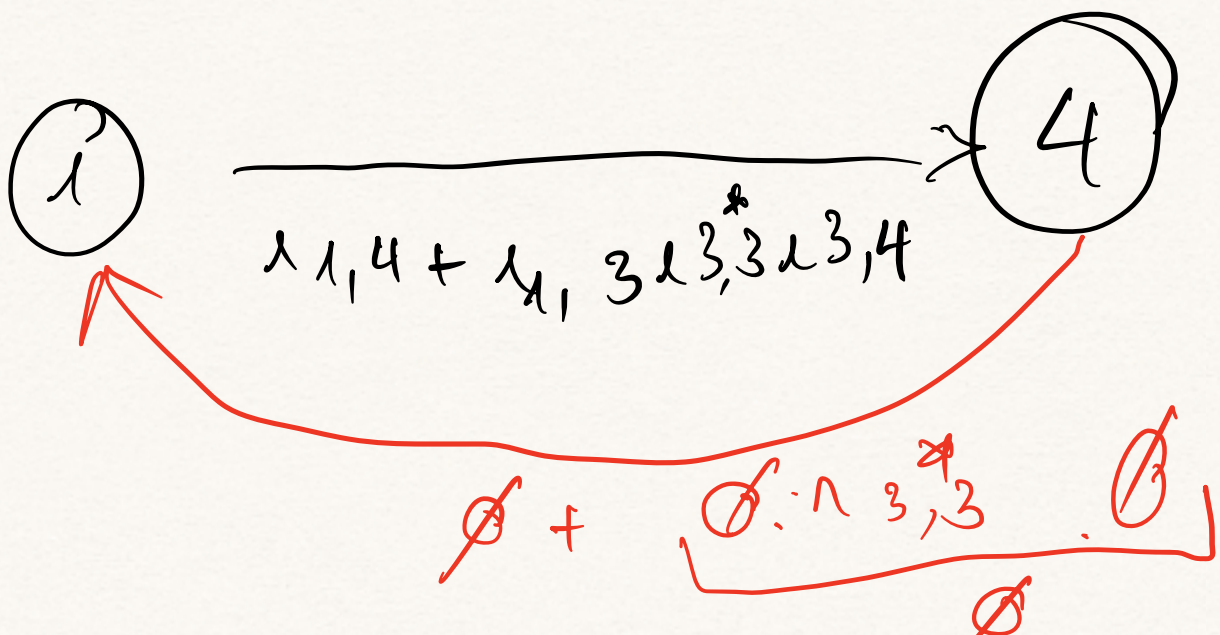 i 4
r1,4 + r1,3 r3,3* r3,4
∅ + ∅ . r3,3* . ∅
∅